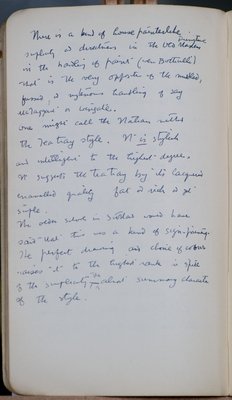 There is a kind of house painterlike
simplicity & directness in the Old Masters
in the handling of paint (even Botticelli)
is the very opposite of the
& handling of say
or
One might call the Italian
the Teatray style. It is stylish
and intelligent to the highest degree.
It suggests the teatray by its lacquer
enamelled quality fat & rich & yet
simple.
The older school in would have
said that this was a kind of sign-painting.
The perfect drawing and choice of colour
raises it to the highest rank in spite
of the simplicity & almost summary character
of the style.